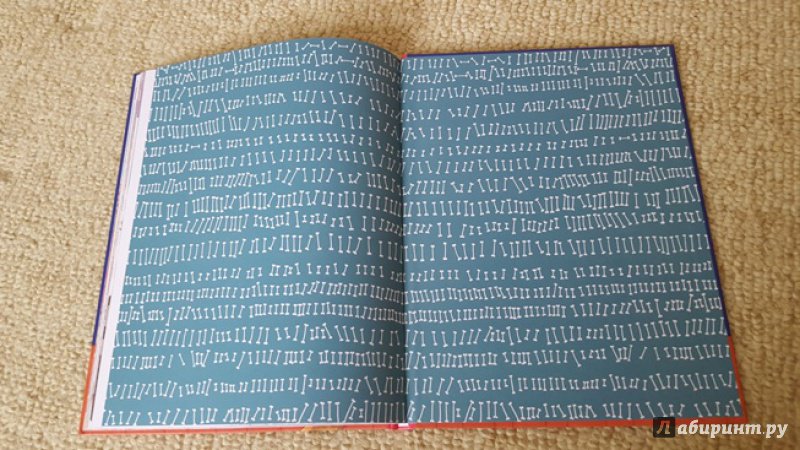 Лабиринт.ру